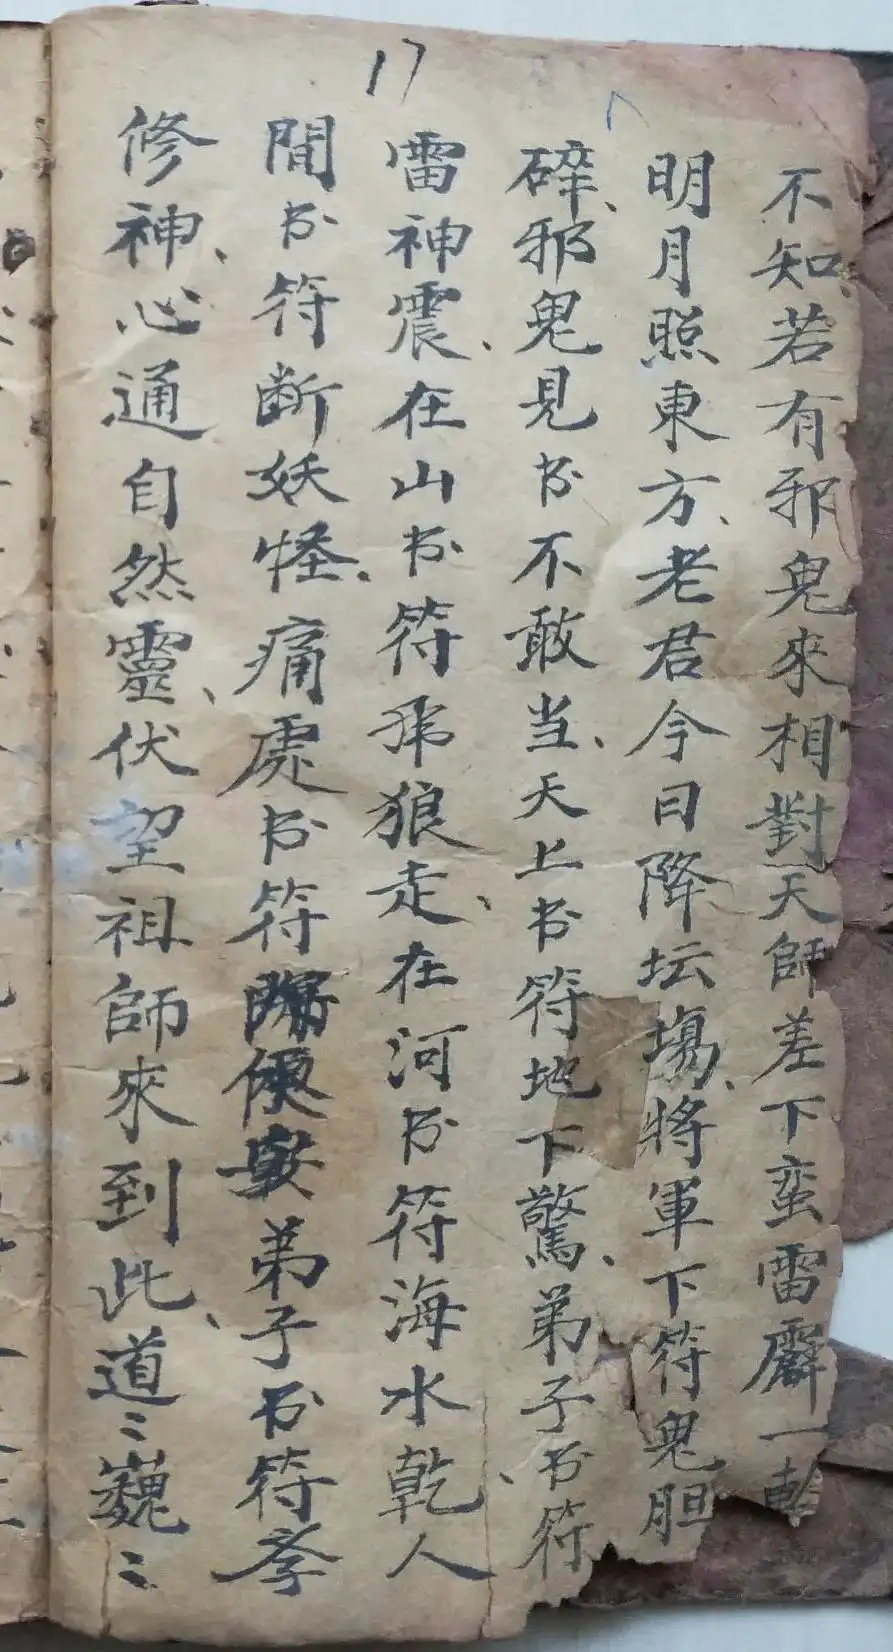 17
不知、若有邪鬼來相對天師差下蛮雷霹一
明月照東方、老君今日降坛塲、將軍下符鬼胆
碎、邪鬼見书不敢当、天上书符地下驚、弟子书符
雷神震、在山书符狼走、在河书符海水乾、人
間书符断妖怪、痛處书符弟子书符
修神、心通自然靈、伏望祖師來到此、道〻巍〻